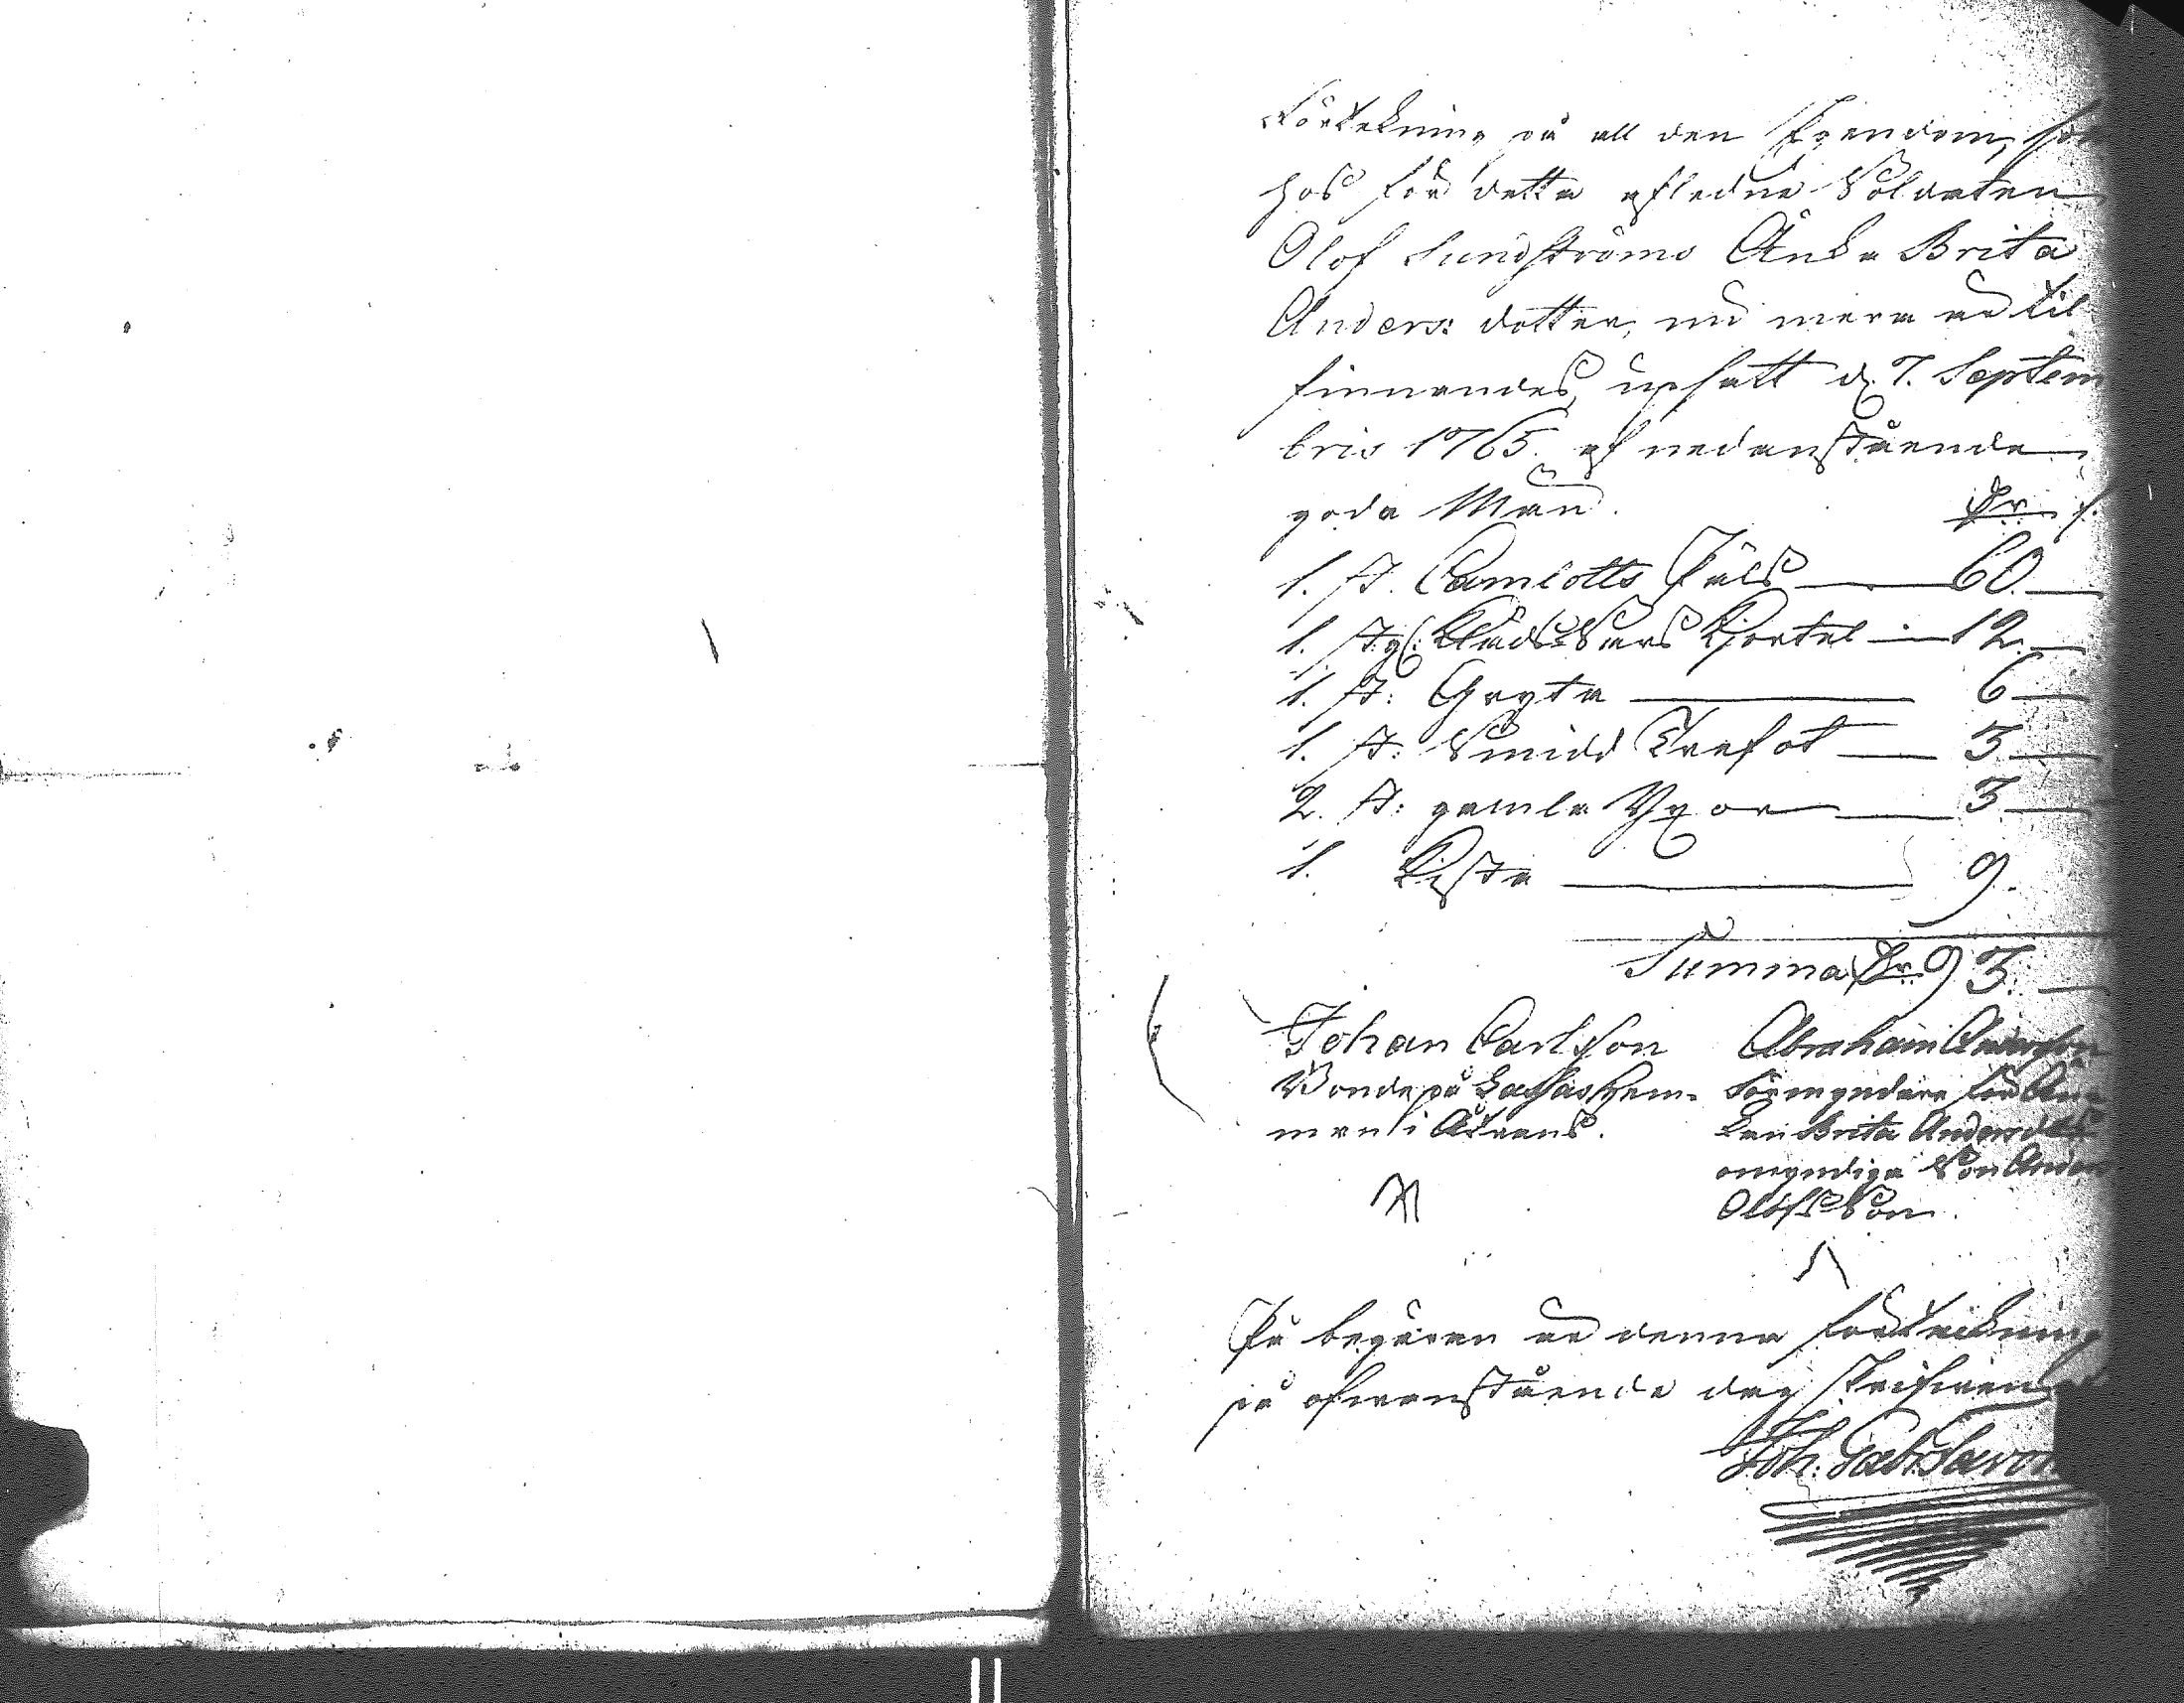 Förtekning på all den Egendom, som
hos för detta afledne Soldaten
Olof Sundströms Änka Brita
Anders: dotter, nu mera är til
finnandes, upsatt d. 7. Septem
bris 1765. af nedanstående
goda Män. Dr
1. st. Camlotts Päls 60.
1. st. gl: Klädes Kjortel 12.
1. st: Gryta 6
1. st: Smidd Trefot 3
2. st: gamla Yxor 3
1. Kista 9.
Summa Dr 93.
Johan Carlsson
Bonde på Hem-
man i
Abraham Andersson
Förmyndare för Än-
kan Brita Andersd
omyndiga Son Anders
Olofs Son.
På begäran är denna förteckning
på ofwanstående dag skrifwen
Joh: Gab: